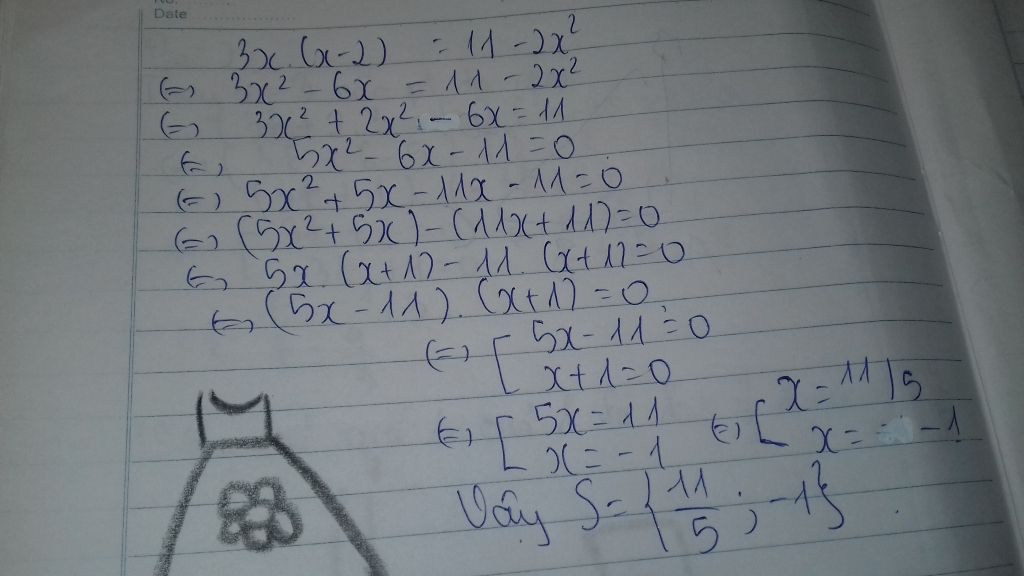 No.
Date
3x.(x-2) = 11 - 2x²
(=) 3x² - 6x = 11 - 2x²
(=) 3x² + 2x² - 6x = 11
(=) 5x² - 6x - 11 = 0
(=) 5x² + 5x - 11x - 11 = 0
(=) (5x² + 5x) - (11x + 11) = 0
(=) 5x.(x+1) - 11.(x+1) = 0
(=) (5x - 11).(x+1) = 0
(=) [ 5x - 11 = 0
x + 1 = 0
(=) [ 5x = 11 (=) [ x = 11/5
x = -1 x = -1
Vậy S = {11/5; -1}